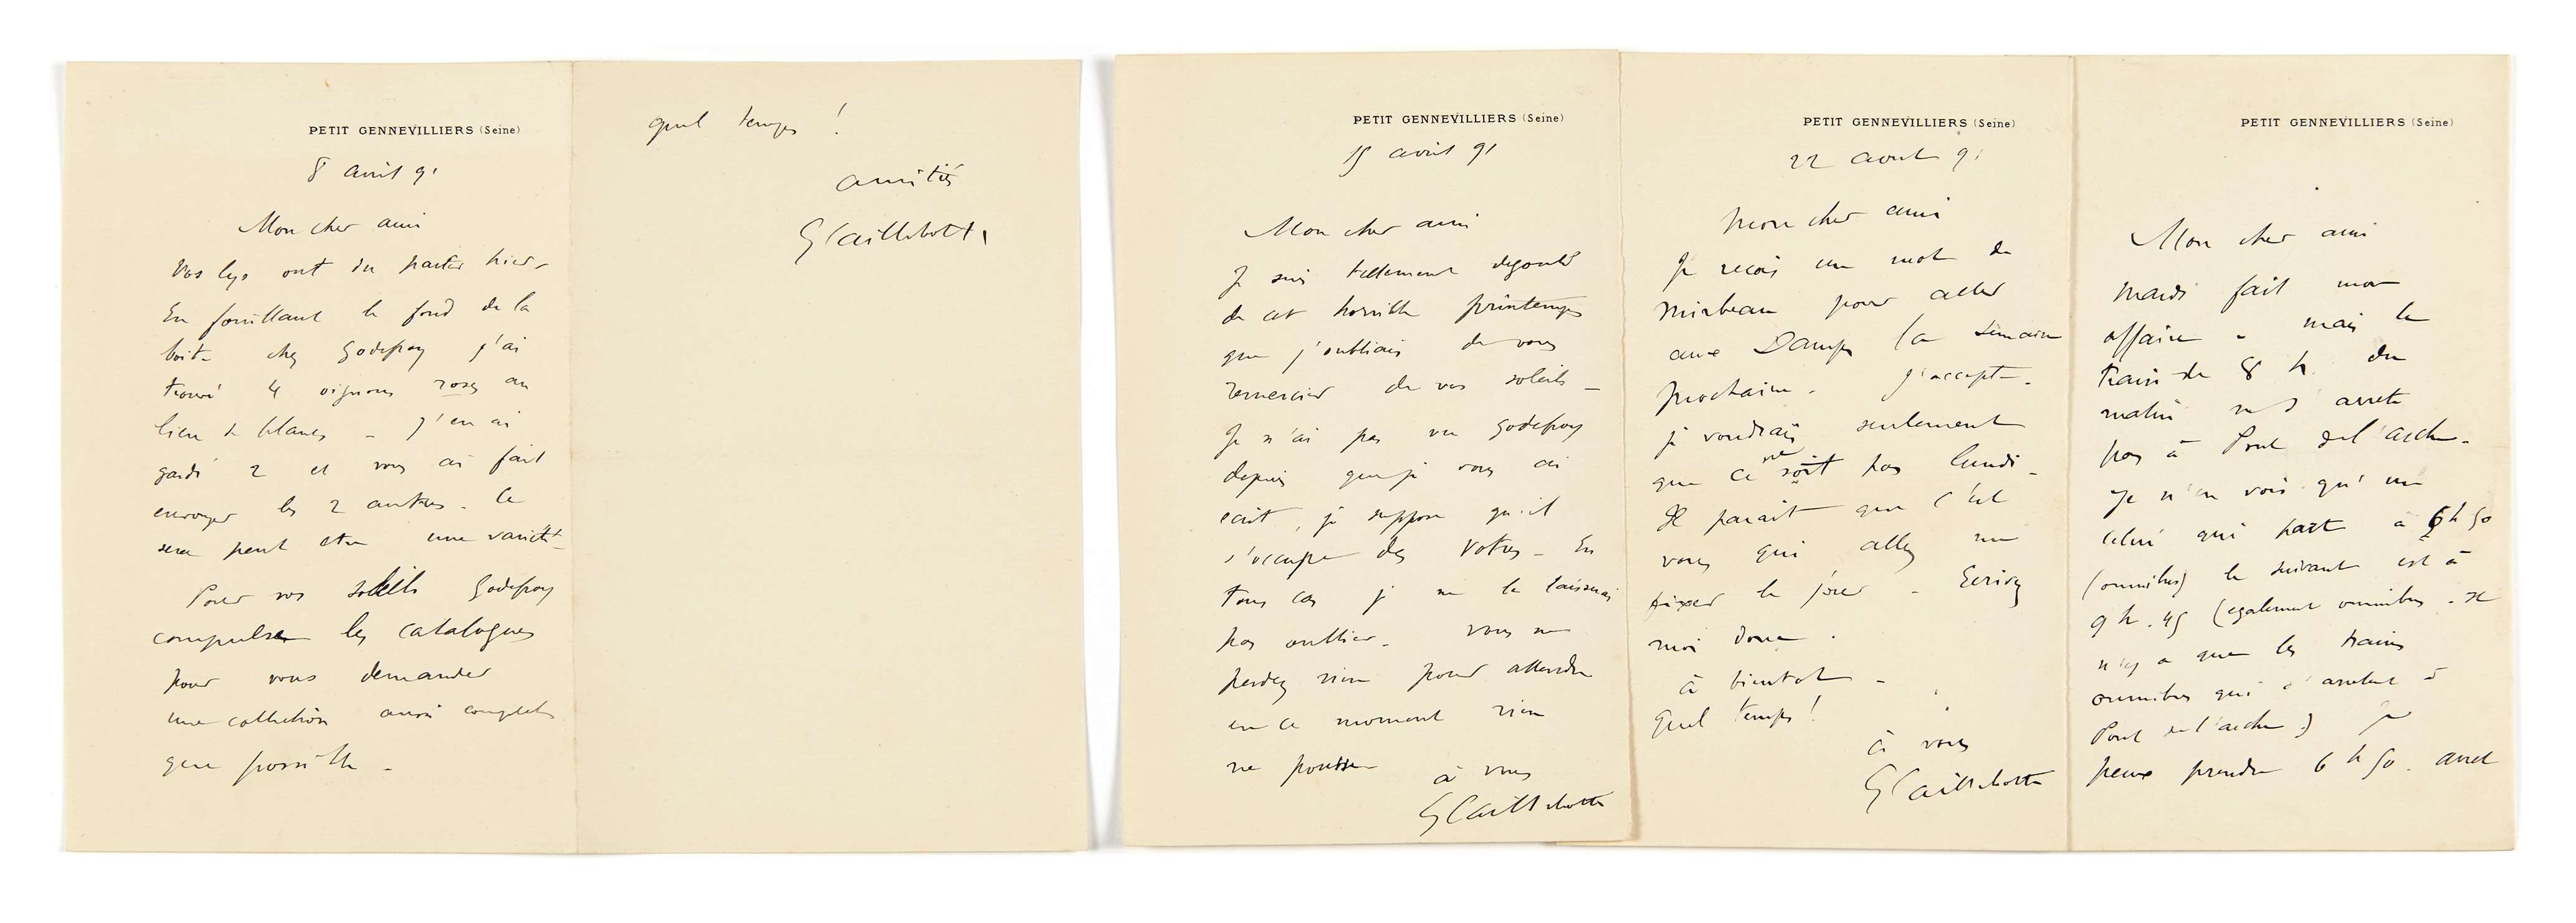 PETIT GENNEVILLIERS (Seine)
8 avril 91
Mon cher ami
Vos lys ont du partir hier –
En fouillant le fond de la
boite chez Godefroy j'ai
trouvé 4 oignons roses au
lieu de blancs – j'en ai
gardé 2 et vous ai fait
envoyer les 2 autres. Ce
sera peut etre une varieté –
Pour vos soleils Godefroy
compulse les catalogues
pour vous demander
une collection aussi complete
que possible –
quel temps !
amitiés
G Caillebotte
PETIT GENNEVILLIERS (Seine)
15 avril 91
Mon cher ami
Je suis tellement degouté
de cet horrible printemps
que j'oubliais de vous
remercier de vos soleils –
Je n'ai pas vu Godefroy
depuis que je vous ai
ecrit, je suppose qu'il
s'occupe des votres – En
tous cas je ne le laisserai
pas oublier – Vous ne
perdez rien pour attendre
en ce moment rien
ne pousse
à vous
G Caillebotte
PETIT GENNEVILLIERS (Seine)
22 aout 91
Mon cher ami
Je reçois un mot de
Mirbeau pour aller
aux Damps la semaine
prochaine. J'accepte.
je voudrais seulement
que ce ne soit pas lundi –
Il parait que c'est
vous qui allez me
fixer le jour – Ecrivez
moi donc.
à bientot –
Quel temps !
à vous
G Caillebotte
PETIT GENNEVILLIERS (Seine)
Mon cher ami
Mardi fait mon
affaire – mais le
train de 8 h du
matin ne s'arrete
pas à Pont de l'arche.
Je n'en vois qu'un
celui qui part à 6 h 50
(omnibus) le suivant est à
9 h. 45 (egalement omnibus. Il
n'y a que les trains
omnibus qui s'arretent à
Pont de l'arche) Je
peux prendre 6 h 50.